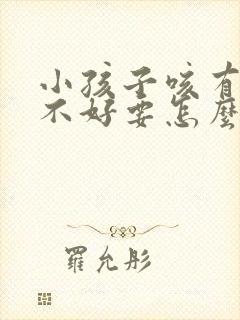 小孩子咳有
不好要怎麼
羅允彤